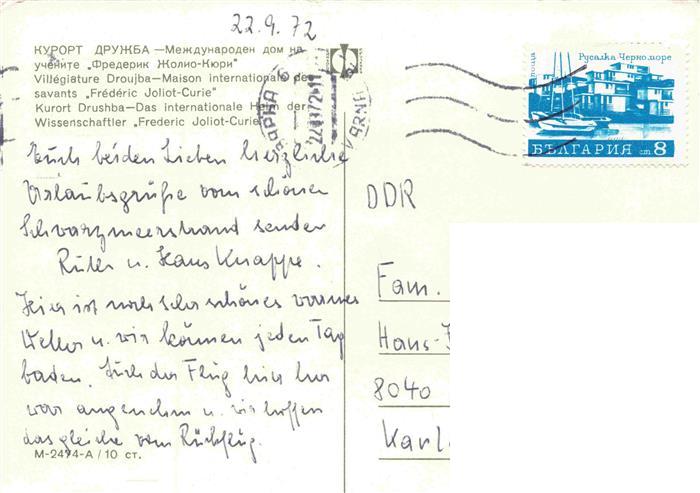 22.9.72
КУРОРТ ДРУЖБА —Международен дом на
учените „Фредерик Жолио-Кюри"
Villégiature Droujba—Maison internationale des
savants "Frédéric Joliot-Curie"
Kurort Drushba—Das internationale Heim der
Wissenschaftler „Frederic Joliot-Curie"
ВАРНА
VARNA
поща Русалка Черноморе
БЪЛГАРИЯ ст 8
Euch beiden Lieben herzliche
Urlaubsgrüße vom schönen
Schwarzmeerstrand senden
Ruth u. Hans Knappe.
Hier ist noch sehr schönes warmes
Wetter u. wir können jeden Tag
baden. Auch der Flug hier her
war angenehm u. wir hoffen
das gleiche vom Rückflug.
М-2494-А / 10 ст.
DDR
Fam.
Hans-
8040
Karl